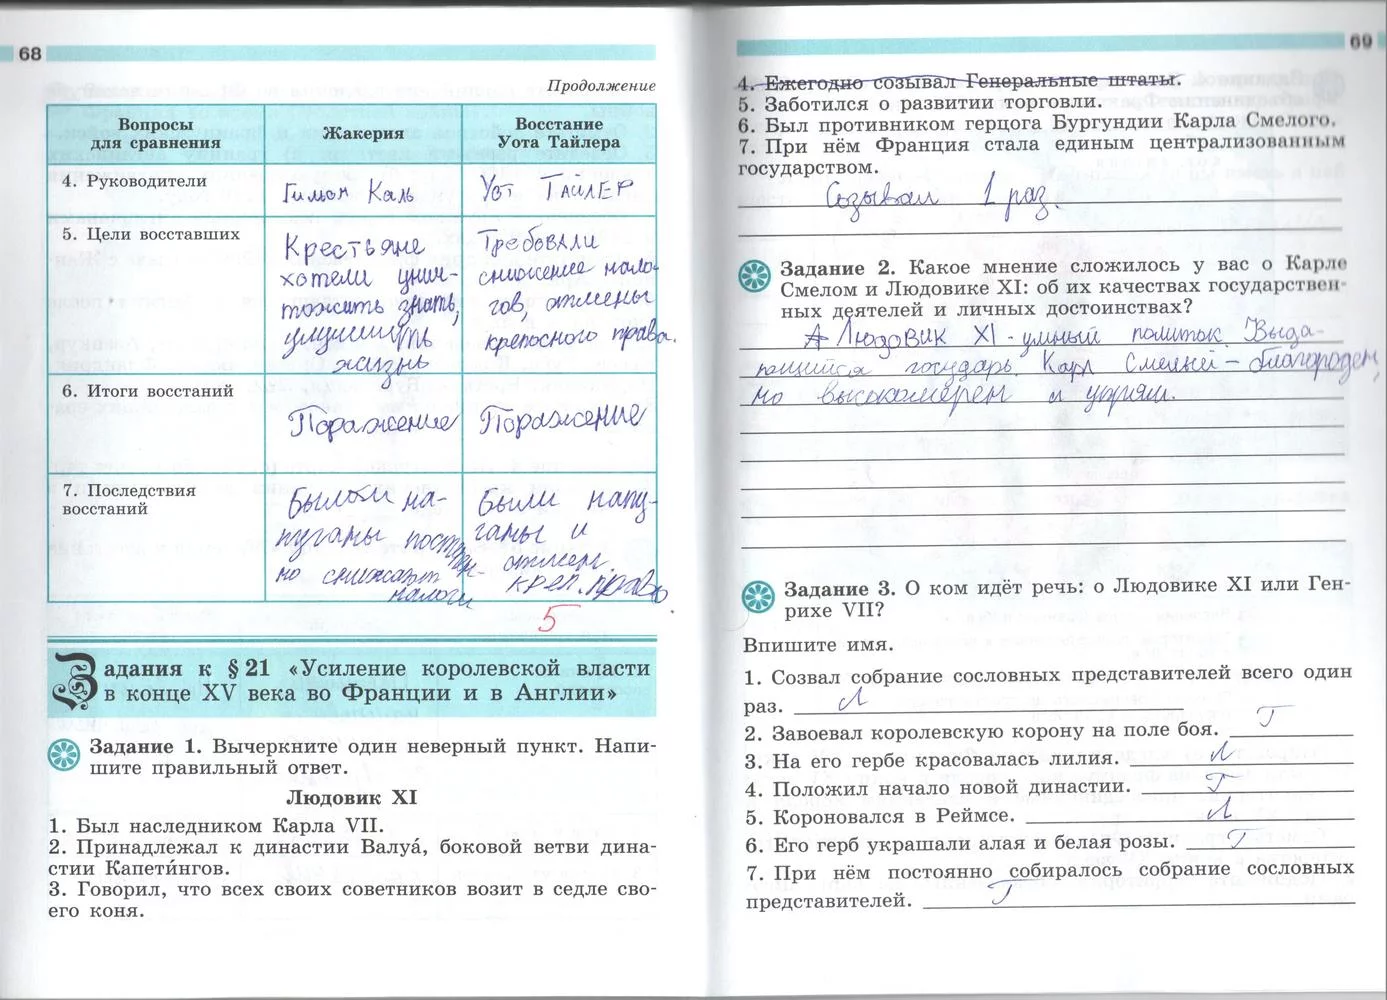 68
Продолжение
Вопросы
для сравнения
Жакерия
Восстание
Уота Тайлера
4. Руководители
Гильом Каль
Уот Тайлер
5. Цели восставших
Крестьяне
хотели унич-
тожить знать,
улучшить
жизнь
Требовали
снижение нало-
гов, отмены
крепосного права.
6. Итоги восстаний
Поражение
Поражение
7. Последствия
восстаний
Были на-
пуганы постепен-
но снижают
налоги
Были напу-
ганы и
отмен.
креп. право.
5
Задания к § 21 «Усиление королевской власти
в конце XV века во Франции и в Англии»
Задание 1. Вычеркните один неверный пункт. Напи-
шите правильный ответ.
Людовик XI
1. Был наследником Карла VII.
2. Принадлежал к династии Валуа́, боковой ветви дина-
стии Капети́нгов.
3. Говорил, что всех своих советников возит в седле сво-
его коня.
69
4. Ежегодно созывал Генеральные штаты.
5. Заботился о развитии торговли.
6. Был противником герцога Бургундии Карла Смелого.
7. При нём Франция стала единым централизованным
государством.
Созывал 1 раз.
Задание 2. Какое мнение сложилось у вас о Карле
Смелом и Людовике XI: об их качествах государствен-
ных деятелей и личных достоинствах?
Людовик XI - умный политик. Выда-
ющийся государь. Карл Смелый - благороден,
но высокомерен и упрям.
Задание 3. О ком идёт речь: о Людовике XI или Ген-
рихе VII?
Впишите имя.
1. Созвал собрание сословных представителей всего один
раз. Л
2. Завоевал королевскую корону на поле боя. Г
3. На его гербе красовалась лилия. Л
4. Положил начало новой династии. Г
5. Короновался в Реймсе. Л
6. Его герб украшали алая и белая розы. Г
7. При нём постоянно собиралось собрание сословных
представителей. Г